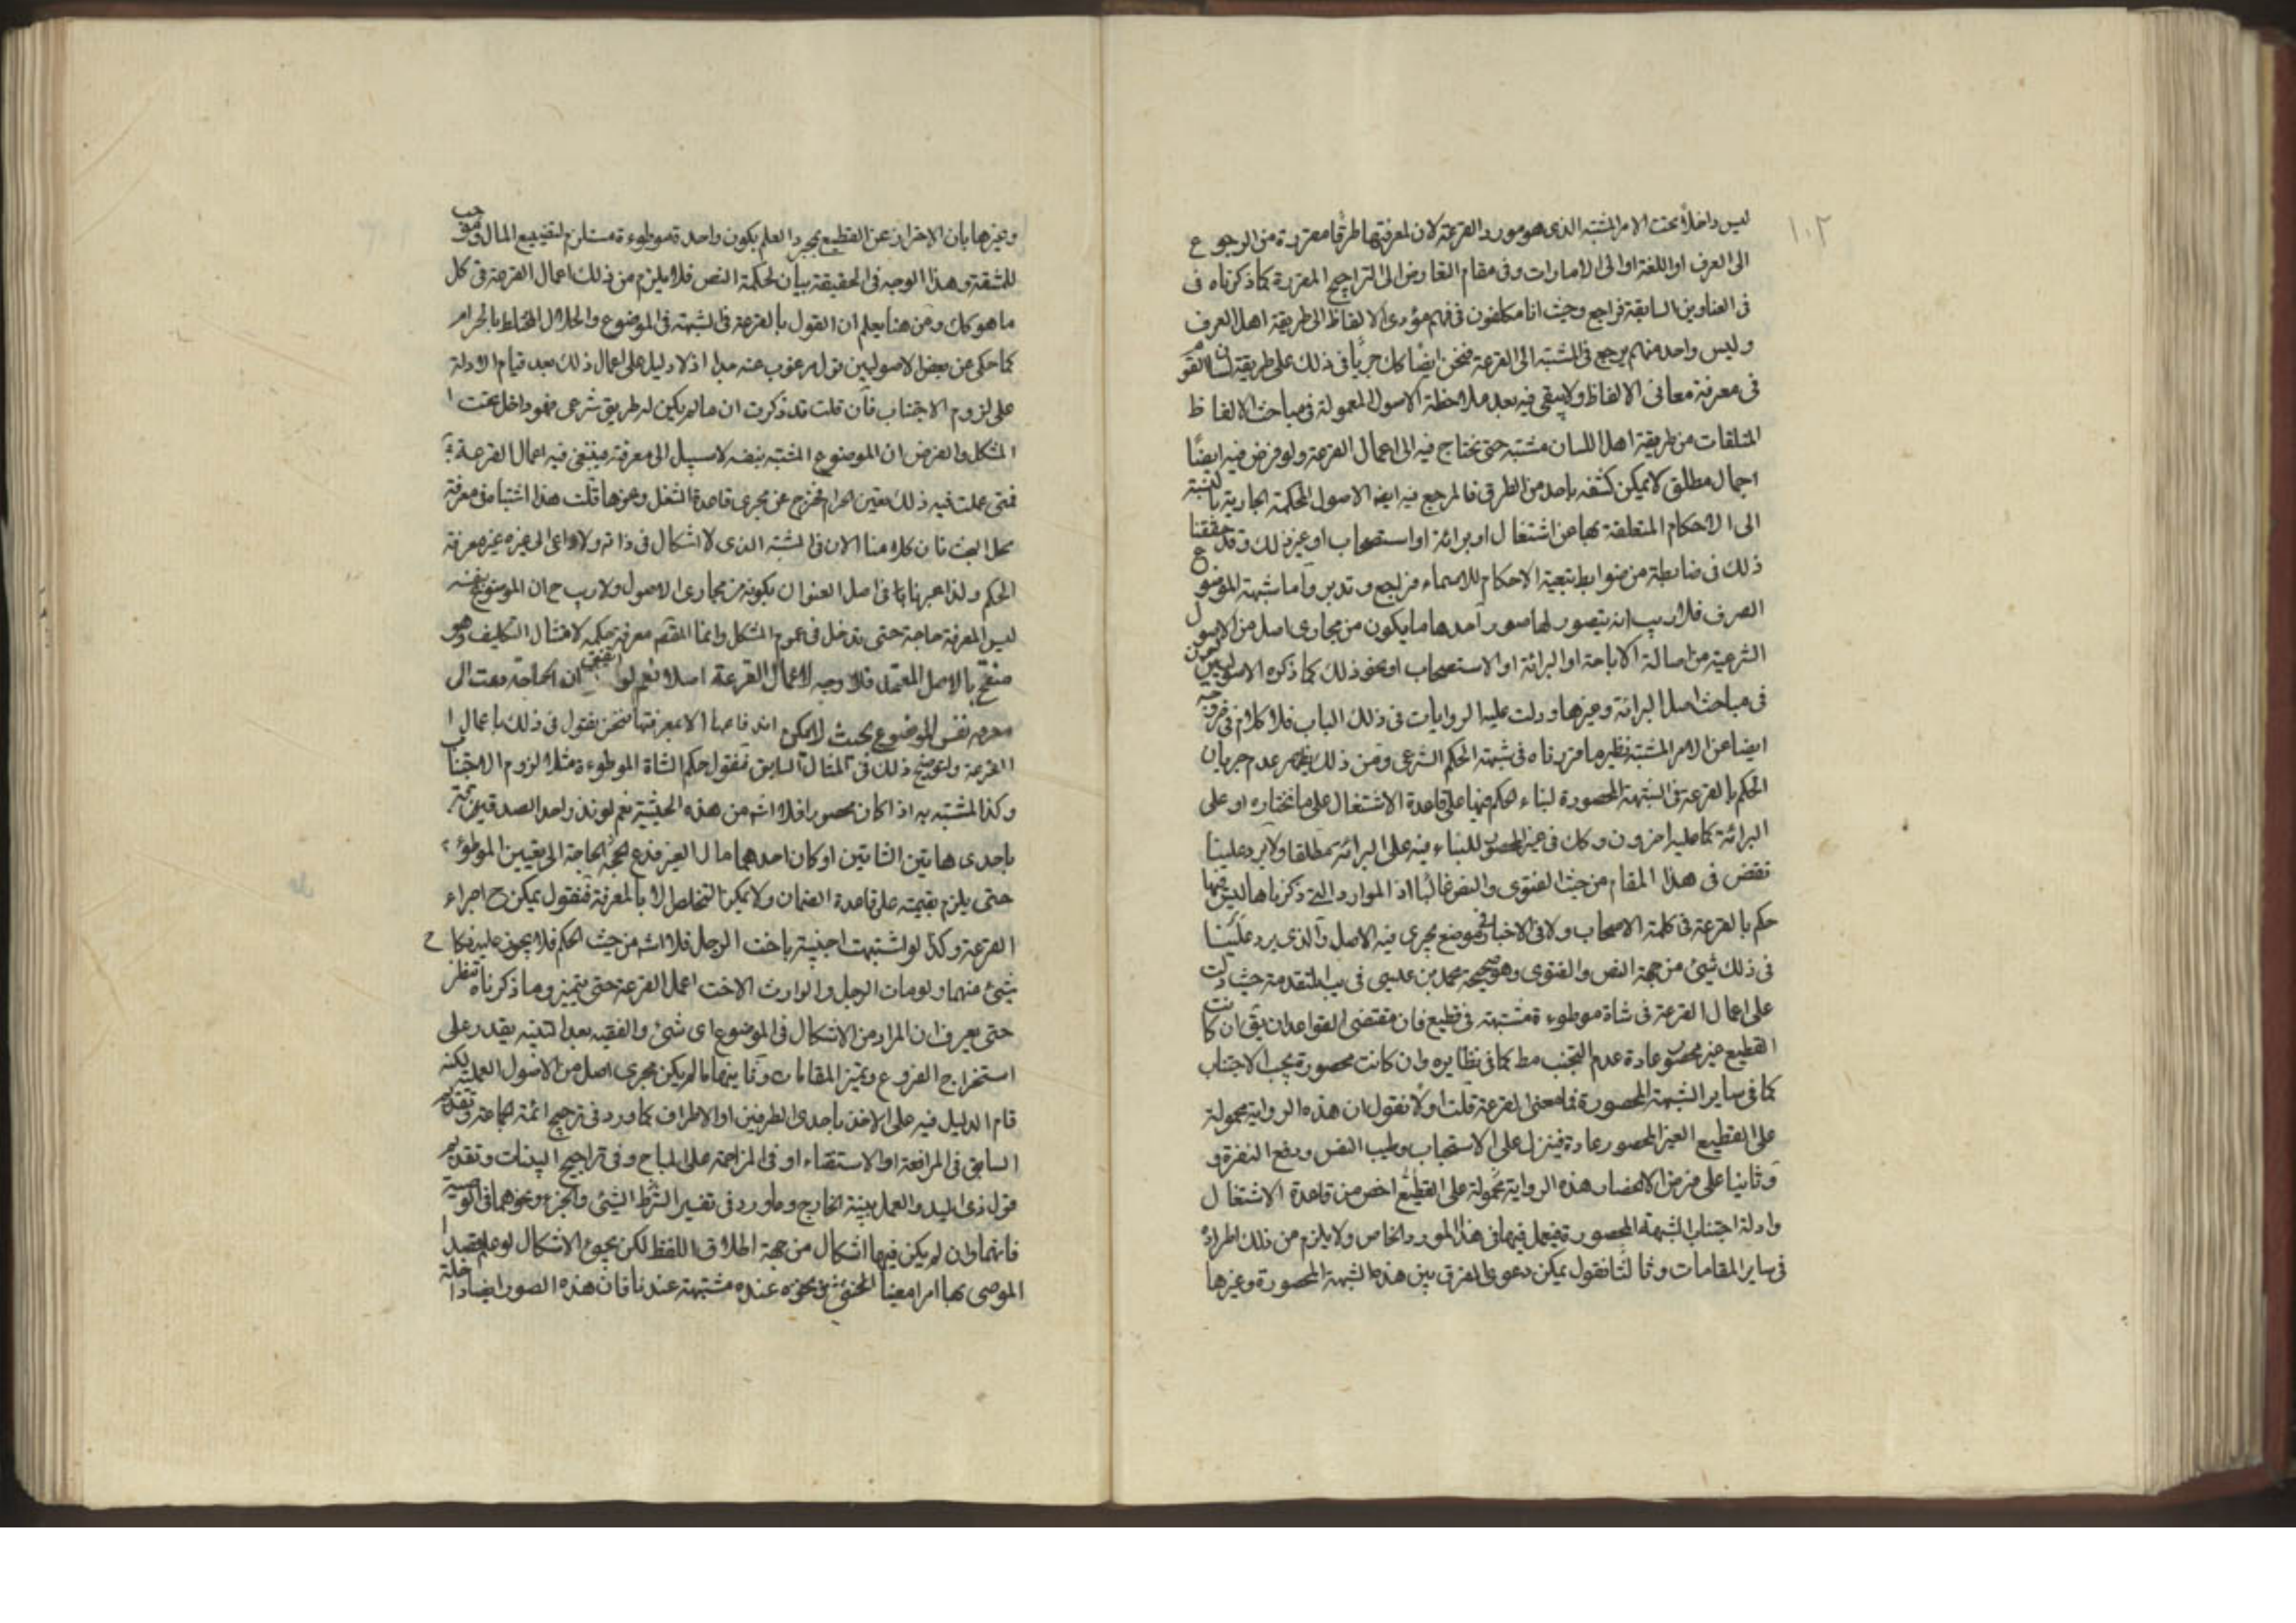 ١٠٢
ليس داخلا تحت الامر المشتبه الذى هو مورد القرعة لان لمعرفتها طرقا مقررة من الرجوع
الى العرف او اللغة او الى الامارات وفى مقام التعارض الى التراجيح المقررة كما ذكرناه فى
فى العناوين السابقة فراجع وحيث انا مكلفون فى فهم مؤدى الالفاظ الى طريقة اهل العرف
وليس واحد منهم يرجع فى المشتبه الى القرعة فنحن ايضا كك جريا فى ذلك على طريقة لسان القوم
فى معرفة معانى الالفاظ ولا يبقى فيه بعد ملاحظة الاصول المعمولة فى مباحث الالفاظ
المتلقات من طريقة اهل اللسان مشتبه حتى يحتاج فيه الى اعمال القرعة ولو فرض فيه ايضا
اجمال مطلق لا يمكن كشفه باحد من الطرق فالمرجع فيه ايضا الاصول المحكمة الجارية بالنسبة
الى الاحكام المتعلقة بها من اشتغال او برائة او استصحاب او غير ذلك وقد حققنا
ذلك فى ضابطة من ضوابط تبعية الاحكام للاسماء فراجع وتدبر واما شبهة الموضوع
الصرف فلا ريب انه يتصور لها صور احدها ما يكون من مجارى اصل من الاصول
الشرعية من اصالة الاباحة او البرائة او الاستصحاب او نحو ذلك كما ذكره الاصوليين
فى مباحث اصل البرائة وغيرها ودلت عليه الروايات فى ذلك الباب فلا كلام فى خروجه
ايضا عن الامر المشتبه نظير ما قررناه فى شبهة الحكم الشرعى ومن ذلك يظهر عدم جريان
الحكم بالقرعة فى الشبهة المحصورة لبناء حكم فيها على قاعدة الاشتغال على ما نختاره او على
البرائة كما عليه اخرون وكك فى غير المحصور للبناء فيه على البرائة مطلقا ولا يرد علينا
نقض فى هذا المقام من حيث الفتوى والنص غالبا اذ الموارد التى ذكرناها ليس فيها
حكم بالقرعة فى كلمة الاصحاب ولا فى الاخبار فى موضع يجرى فيه الاصل والذى يرد علينا
فى ذلك شئ من جهة النص والفتوى وهو صحيحة محمد بن عيسى فى يب المتقدمة حيث دلت
على اعمال القرعة فى شاة موطوءة مشتبهة فى قطيع فان مقتضى القواعد ان يق ان كانت
القطيع غير محصور عادة عدم التجنب مط كما فى نظايره وان كانت محصورة يجب الاجتناب
كما فى ساير الشبهة المحصورة فما معنى القرعة قلت اولا نقول ان هذه الرواية محمولة
على القطيع الغير المحصور عادة فينزل على الاستحباب وطيب النفس ودفع النفرة و
وثانيا على فرض الانحصار هذه الرواية محمولة على القطيع اخص من قاعدة الاشتغال
وادلة اجتناب الشبهة المحصورة فيعمل فيها فى هذا المورد الخاص ولا يلزم من ذلك اطراده
فى ساير المقامات وثالثا نقول يمكن دعوى الفرق بين هذه الشبهة المحصورة وغيرها
وغيرها بان الاحتراز عن القطيع بمجرد العلم بكون واحدة موطوءة مستلزم لتضييع المال وموجب
للمشقة وهذا الوجه فى الحقيقة بيان لحكمة النص فلا يلزم من ذلك اعمال القرعة فى كل
ما هو كك ومن هنا يعلم ان القول بالقرعة فى الشبهة فى الموضوع والحلال المختلط بالحرام
كما حكى عن بعض الاصوليين قول مرغوب عنه جدا اذ لا دليل على اعمال ذلك بعد قيام الادلة
على لزوم الاجتناب فان قلت قد ذكرت ان ما لم يكن له طريق شرعى فهو داخل تحت ا
المشكل والفرض ان الموضوع المشتبه بنفسه لا سبيل الى معرفته فينبغى فيه اعمال القرعة
فمتى عملت فيه ذلك تعين الحرام فخرج عن مجرى قاعدة الشغل وغيرها قلت هذا اشتباه فى معرفة
محل البحث فان كلامنا الان فى المشتبه الذى لا اشكال فى ذاته ولا داعى الى غيره غير معرفة
الحكم ولذا عبرنا فى اصل العنوان بكونه من مجارى الاصول ولا ريب ح ان الموضوع بنفسه
ليس لمعرفة حاجة حتى يدخل فى عموم المشكل وانما المقصد معرفة حكمه لامتثال التكليف وهو
منقح بالاصل المعتمد فلا وجه لاعمال القرعة اصلا نعم لو اتفق ان الحاجة دعت الى
معرفة نفس الموضوع بحيث لا يمكن اندفاعها الا بمعرفتها فنحن نقول فى ذلك باعمال ا
القرعة ولنوضح ذلك فى المقال السابق فنقول حكم الشاة الموطوءة مثلا لزوم الاجتناب
وكذا المشتبه به اذا كان محصورا فلا اشكال من هذه الحيثية نعم لو نذر واحد الصدقة
باحدى هاتين الشاتين او كان احدهما مال الغير فدعى الحاجة الى تعيين الموطوء
حتى يلزم بقيمته على قاعدة الضمان ولا يمكن التخلص الا بالمعرفة فنقول يمكن ح اجراء
القرعة وكذا لو اشتبهت اجنبية باخت الرجل فلا اشكال من حيث الحكم فلا يجوز عليه نكاح
شئ منهما ولو مات الرجل والوارث الاخت اعمل القرعة حتى يتميز وما ذكرناه تنظر
حتى يعرف ان المراد من الاشكال فى الموضوع اى شئ والفقيه بعد التنبه يقدر على
استخراج الفروع وتميز المقامات وثانيها ما لم يكن مجرى اصل من الاصول العملية لكنه
قام الدليل فيه على الاخذ باحدى الطرفين او الاطراف كما ورد فى ترجيح ائمة الجماعة وتقديم
السابق فى المرافعة او الاستفتاء او فى المزاحمة على المباح وفى تراجيح البينات وتقديم
قول ذى اليد والعمل ببينة الخارج وما ورد فى تفسير الشرط الشئ والجزء ونحوهما فى الوصية
فانهما وان لم يكن فيها اشكال من جهة اطلاق اللفظ لكن يجئ الاشكال لو علم قصد
الموصى بها امرا معينا وكون نحوه عنده مشتبهة عندنا فان هذه الصور ايضا داخلة